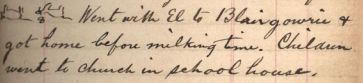 Went with El to Blairgowrie &
got home before milking time. Children
went to church in school house.